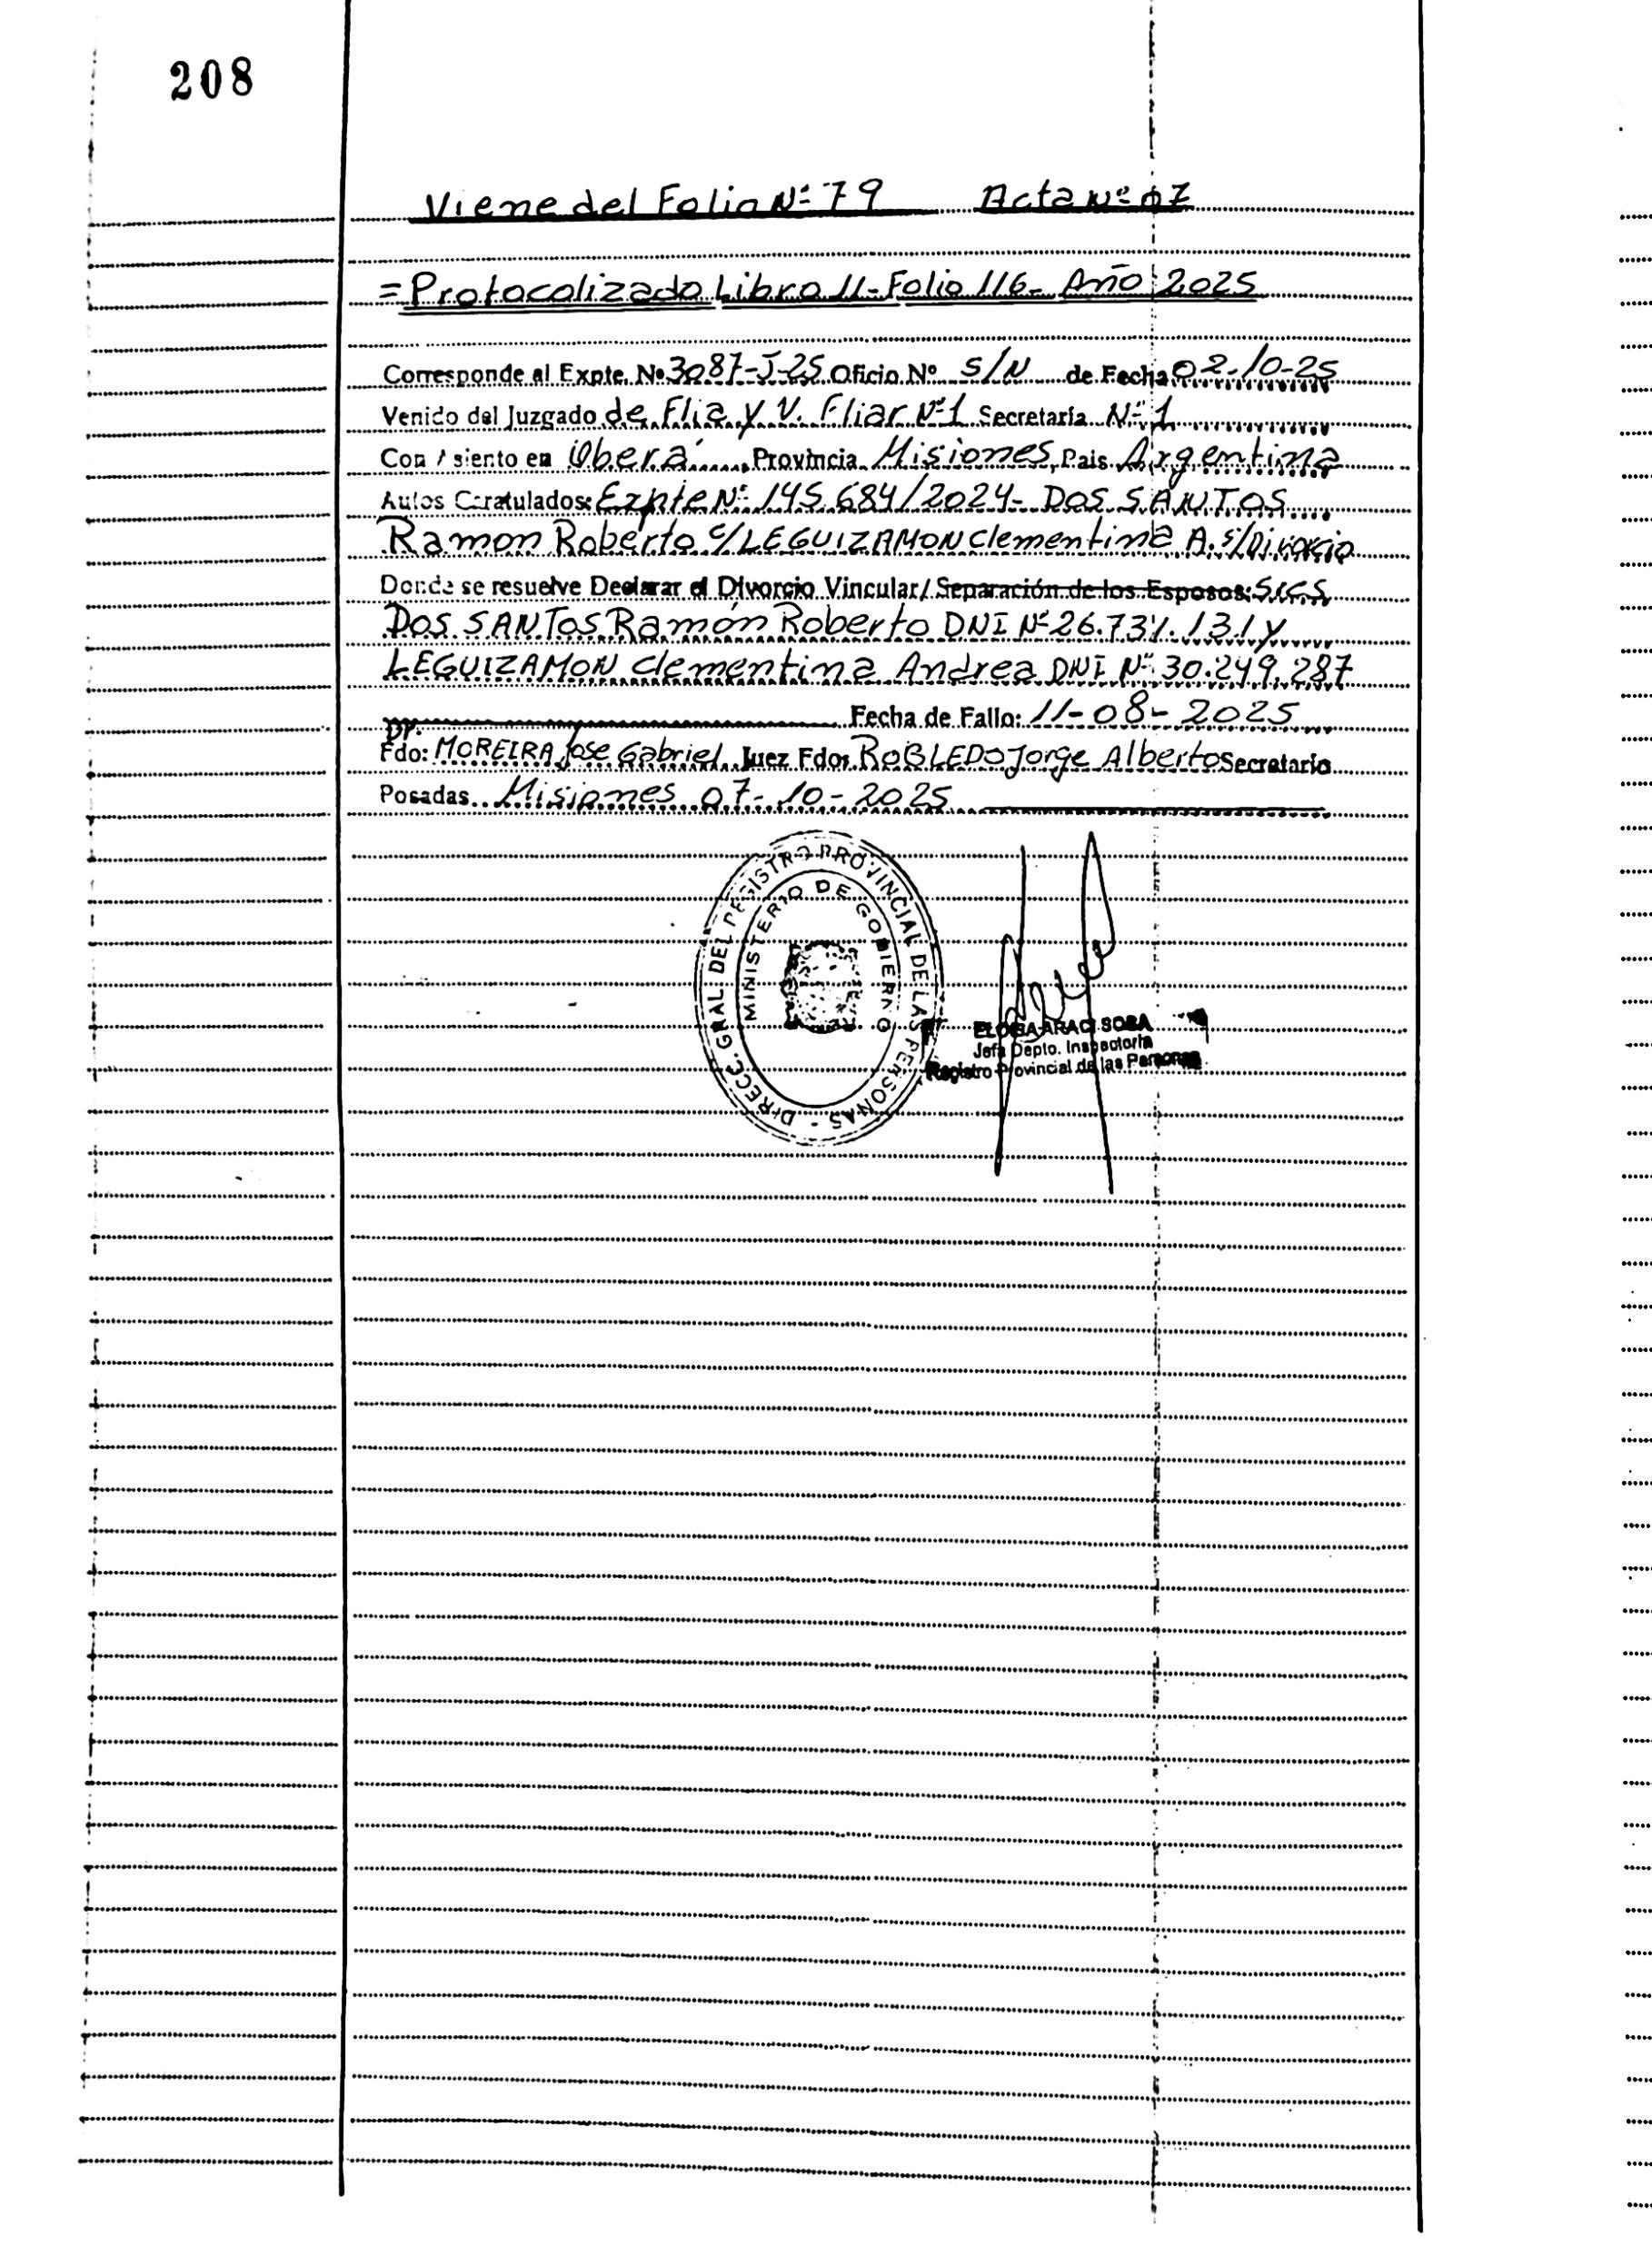 208
Viene del Folio Nº 79 Acta Nº 07
=Protocolizado Libro 11-Folio 116- Año 2025
Corresponde al Expte. Nº 3087-J-25 Oficio Nº S/N de Fecha 02-10-25
Venido del Juzgado de Flia y V. Fliar Nº 1 Secretaría Nº 1
Con Asiento en Oberá Provincia Misiones Pais Argentina
Autos Caratulados: Expte Nº 145.684/2024- DOS SANTOS
Ramon Roberto c/LEGUIZAMON Clementina A. s/Divorcio
Donde se resuelve Declarar el Divorcio Vincular/ Separación de los Esposos:
DOS SANTOS Ramón Roberto DNI Nº 131 y
LEGUIZAMON Clementina Andrea DNI Nº 30.249.287
Fecha de Fallo: 11-08-2025
Dr.
Fdo: MOREIRA Jose Gabriel Juez Fdo: ROBLEDO Jorge Alberto Secretario
Posadas Misiones 07-10-2025
DIRECC. GRAL DEL REGISTRO PROVINCIAL DE LAS PERSONAS -
MINISTERIO DE GOBIERNO
ELOISA ARACI SOSA
Jefa Depto. Inspectoría
Registro Provincial de las Personas